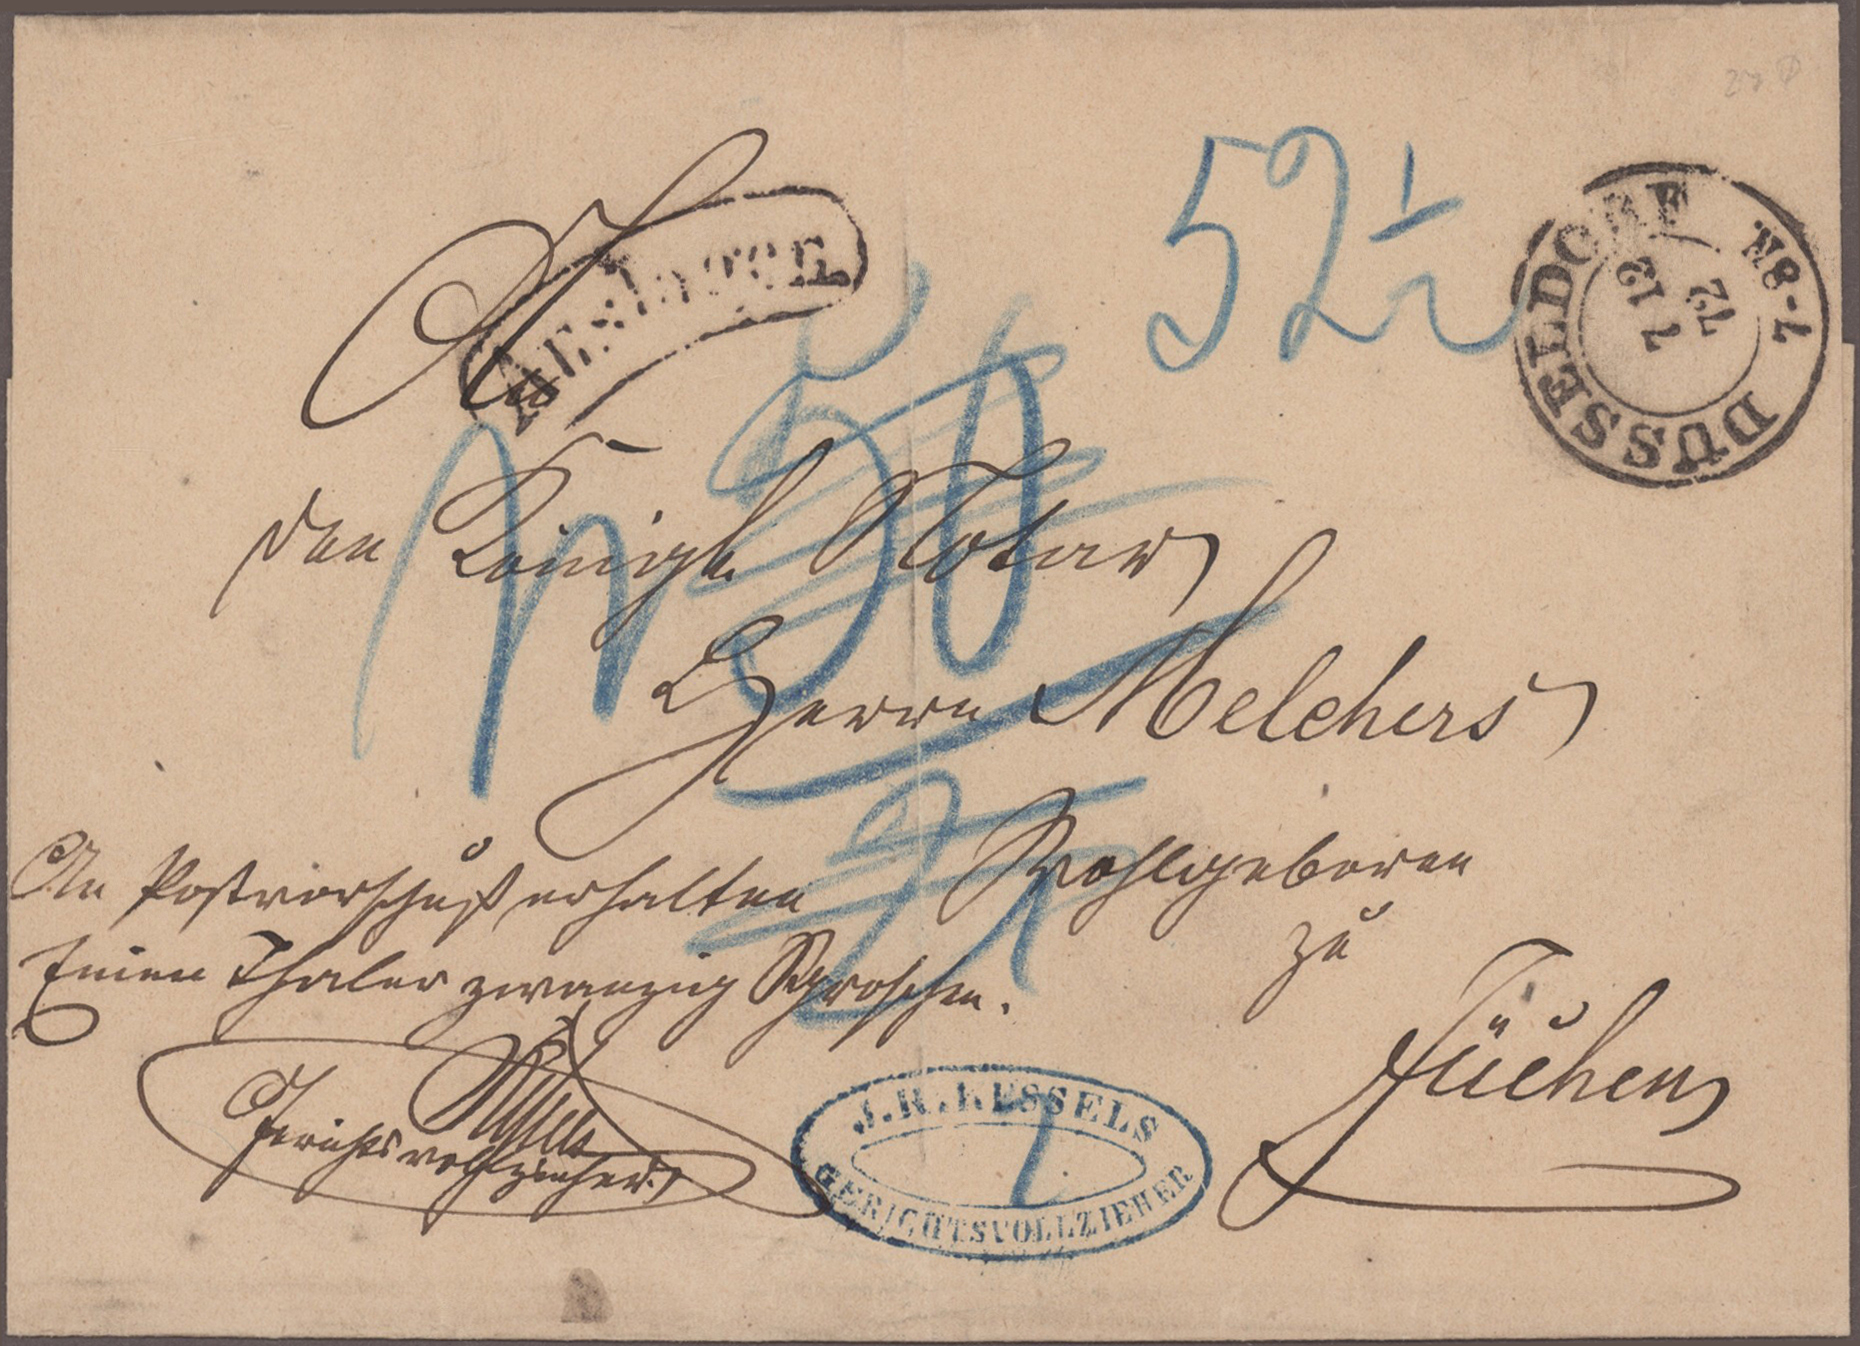 An
Auslagen.
52½
DÜSSELDORF
7 12
72
7-8N
den Königl. Notar
50
Herrn Melchers
Wohlgeboren
zu
Jüchen
An Postvorschuß erhalten
Einen Thaler zwanzig Sgroschen.
Gerichtsvollzieher.
J.H. KESSELS
GERICHTSVOLLZIEHER